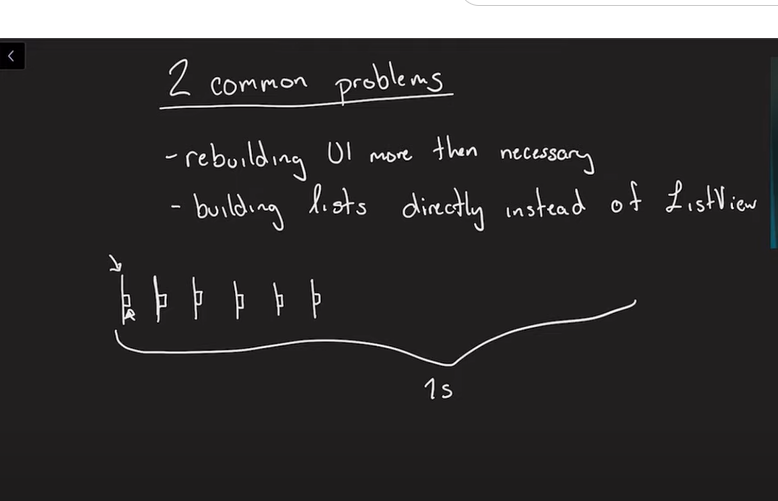 2 common problems
- rebuilding UI more then necessary
- building lists directly instead of ListView
1s